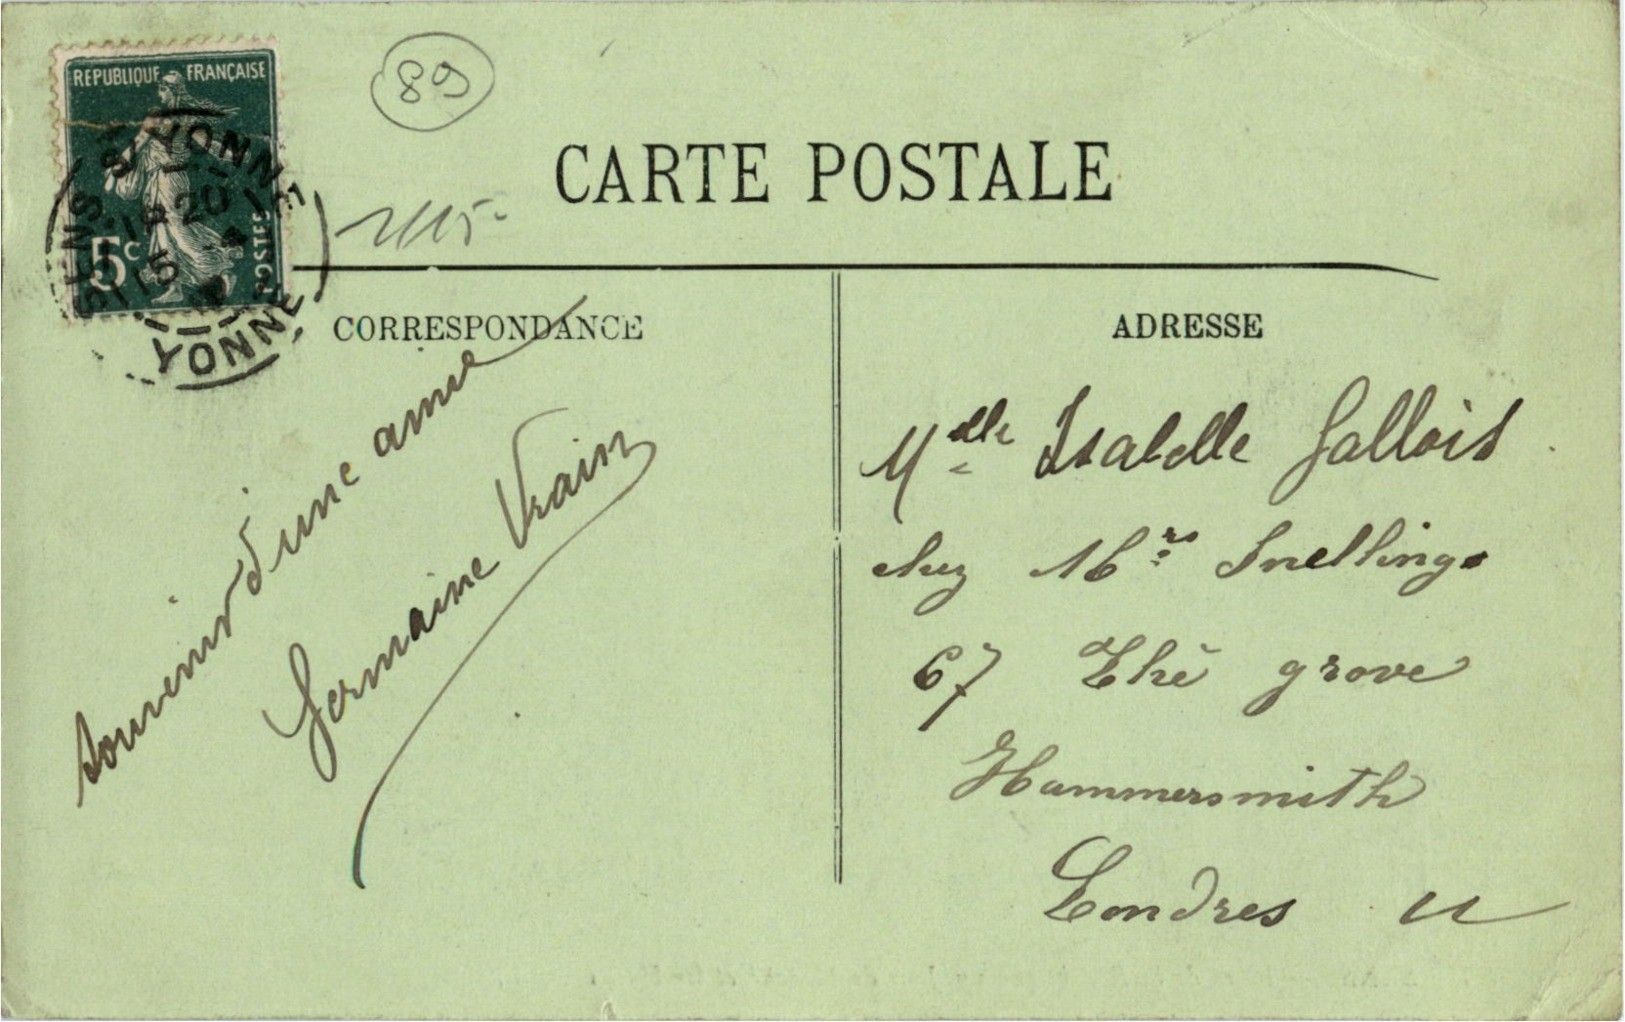 REPUBLIQUE FRANÇAISE
5c
POSTES
SENS S/ YONNE
YONNE
89
CARTE POSTALE
CORRESPONDANCE
souvenir d'une amie
Germaine Vrain
ADRESSE
Melle Isabelle Gallois
chez Mrs Snellings
67 The grove
Hammersmith
Londres